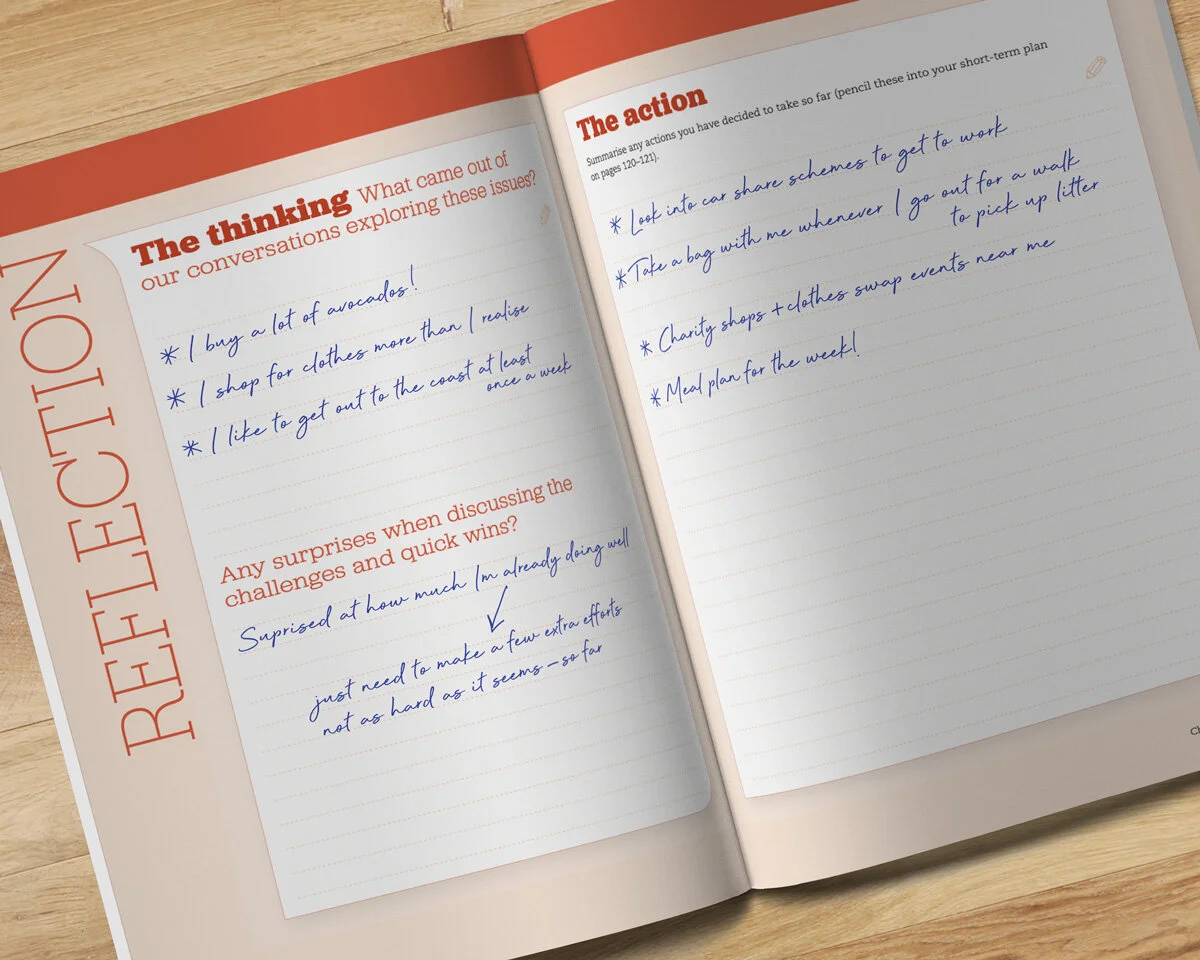 REFLECTION
The thinking What came out of
our conversations exploring these issues?
* I buy a lot of avocados!
* I shop for clothes more than I realise
* I like to get out to the coast at least
once a week
Any surprises when discussing the
challenges and quick wins?
Suprised at how much Im already doing well
just need to make a few extra efforts
not as hard as it seems – so far
The action
Summarise any actions you have decided to take so far (pencil these into your short-term plan
on pages 120–121).
* Look into car share schemes to get to work
* Take a bag with me whenever I go out for a walk
to pick up litter
* Charity shops + clothes swap events near me
* Meal plan for the week!